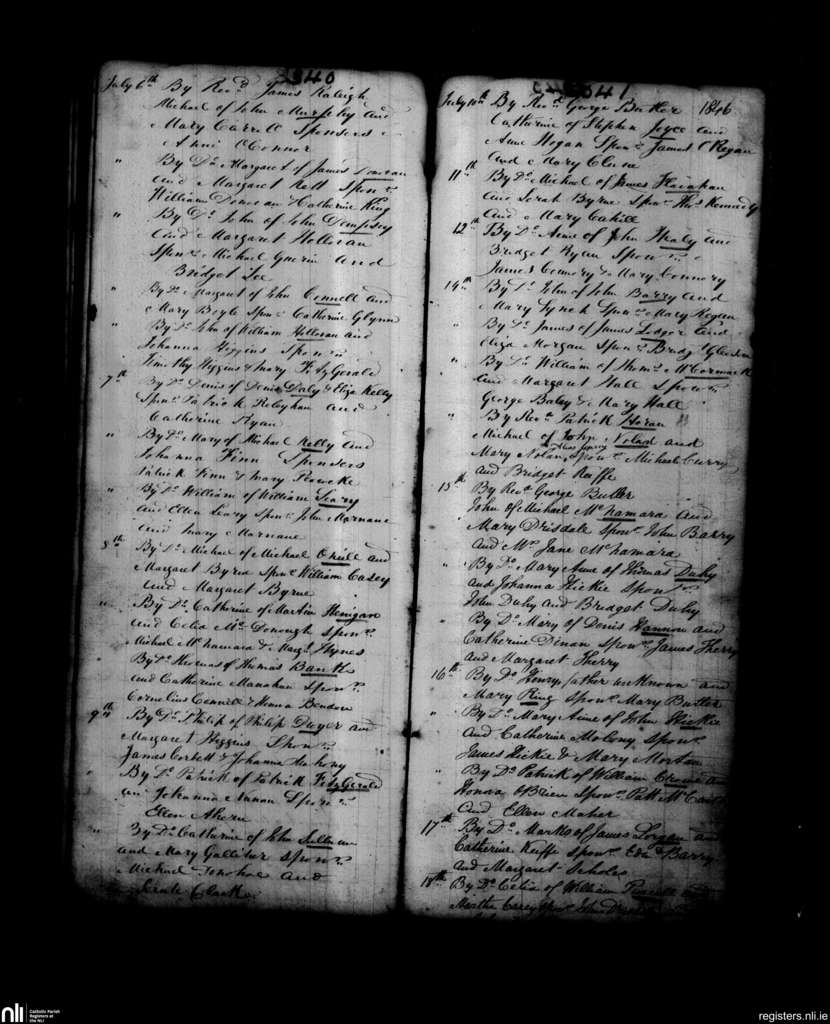 July 6th By Revd. James Raleigh
Michael of John Murphy and
Mary Carroll Sponsors
Anne O'Connor
" By Do. Margaret of James Donovan
and Margaret Kett Sponrs.
William Donovan & Catherine King
" By Do. John of John Dempsey
and Margaret Holloran
Sponrs. Michael Guerin and
Bridget Fee
" By Do. Margaret of John Connell and
Mary Boyle Sponr. Catherine Glynn
" By Do. John of William Holloran and
Johanna Higgins Sponrs.
Timothy Higgins & Mary FitzGerald
7th By Do. Denis of Denis Daly & Eliza Kelly
Sponrs. Patrick and
Catherine Ryan
" By Do. Mary of Michael Kelly and
Johanna Finn Sponsors
Patrick Finn & Mary
" By Do. William of William Leary
and Ellen Leary Sponrs. John Marnane
and Mary Marnane
8th By Do. Michael of Michael O'neill and
Margaret Byrne Sponrs. William Casey
and Margaret Byrne
" By Do. Catherine of Martin Henigan
and Celia McDonough Sponrs.
Michael McNamara & Margt. Hynes
By Do. Thomas of Thomas Banks
and Catherine Manahan Sponrs.
Cornelius Connell & Honora
9th By Do. Philip of Philip Dwyer and
Margaret Higgins Sponrs.
James Corbett & Johanna
" By Do. Patrick of Patrick FitzGerald
and Johanna Sponr.
Ellen Ahern
" By Do. Catherine of John Sullivan
and Mary Galliher Sponrs.
Michael Donohoe and
Sarah Clark
July 10th By Revd. George Butler 1846
Catherine of Stephen Joyce and
Anne Hogan Sponrs. James O'Regan
and Mary Clune
11th By Do. Michael of James
and Sarah Byrne Sponrs. Thos. Kennedy
and Mary Cahill
12th By Do. Anne of John Healy and
Bridget Ryan Sponrs.
James Connery & Mary Connery
14th By Do. John of John Barry and
Mary Lynch Sponr. Mary Regan
" By Do. James of James Ledger and
Eliza Morgan Sponr. Bridgt. Gleeson
" By Do. William of Thoms. McCormack
and Margaret Hall Sponrs.
George Baley & Mary Hall
" By Revd. Patrick Horan
Michael of John Nolan and
Mary Nolan, Sponrs. Michael Curry
and Bridget Keiffe
15th By Revd. George Butler
John of Michael McNamara and
Mary Drisdale Sponrs. John Barry
and Mrs. Jane McNamara
" By Do. Mary Anne of Thomas Duhy
and Johanna Hickie Sponrs.
John Duhy and Bridget Duhy
" By Do. Mary of Denis Hannon and
Catherine Dinan Sponrs. James Sherry
and Margaret Sherry
16th By Do. Henry, father unknown and
Mary King Sponr. Mary Butler
" By Do. Mary Anne of John Hickie
and Catherine Molony Sponrs.
James Hickie & Mary Morton
" By Do. Patrick of William
Honora O'Brien Sponrs. Patt.
and Ellen Maher
17th By Do. Marks of James and
Catherine Keiffe Sponrs. Barry
and Margaret Scholes
18th By Do. Celia of William
Carey Sponr. John
nli
Catholic Parish
Registers at
the NLI
registers.nli.ie